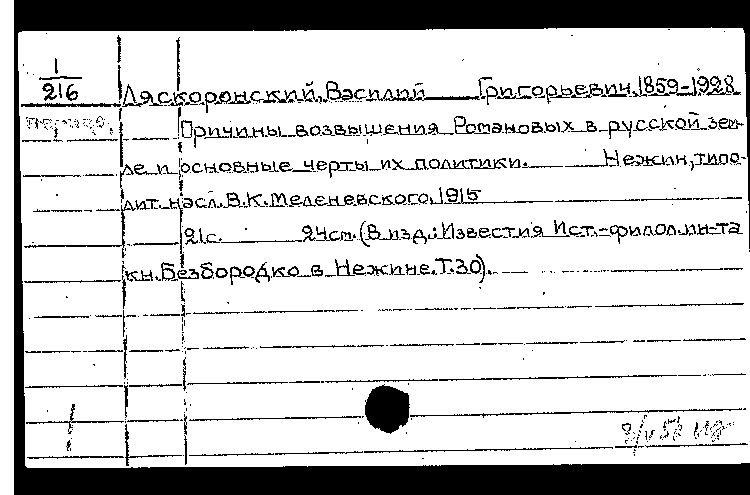 1
216
Ляскоронский, Василий Григорьевич, 1859-1928
Причины возвышения Романовых в русской зем-
ле и основные черты их политики. Нежин, типо-
лит. насл. В.К. Меленевского, 1915
21с. 24см. (В изд.: Известия Ист.-филол. ин-та
кн. Безбородко в Нежине. Т. 30).